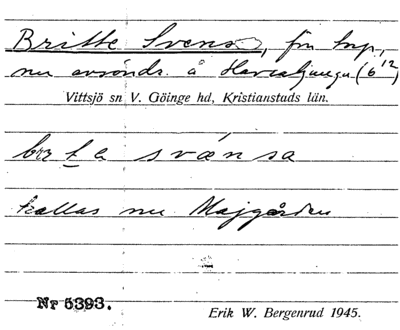 Britte Svens, fm torp,
nu avsöndr. å Havraljunga (6¹²)
Vittsjö sn V. Göinge hd, Kristianstads län.
brɪta svænsa
kallas nu Majgården
Nr 5393.
Erik W. Bergenrud 1945.